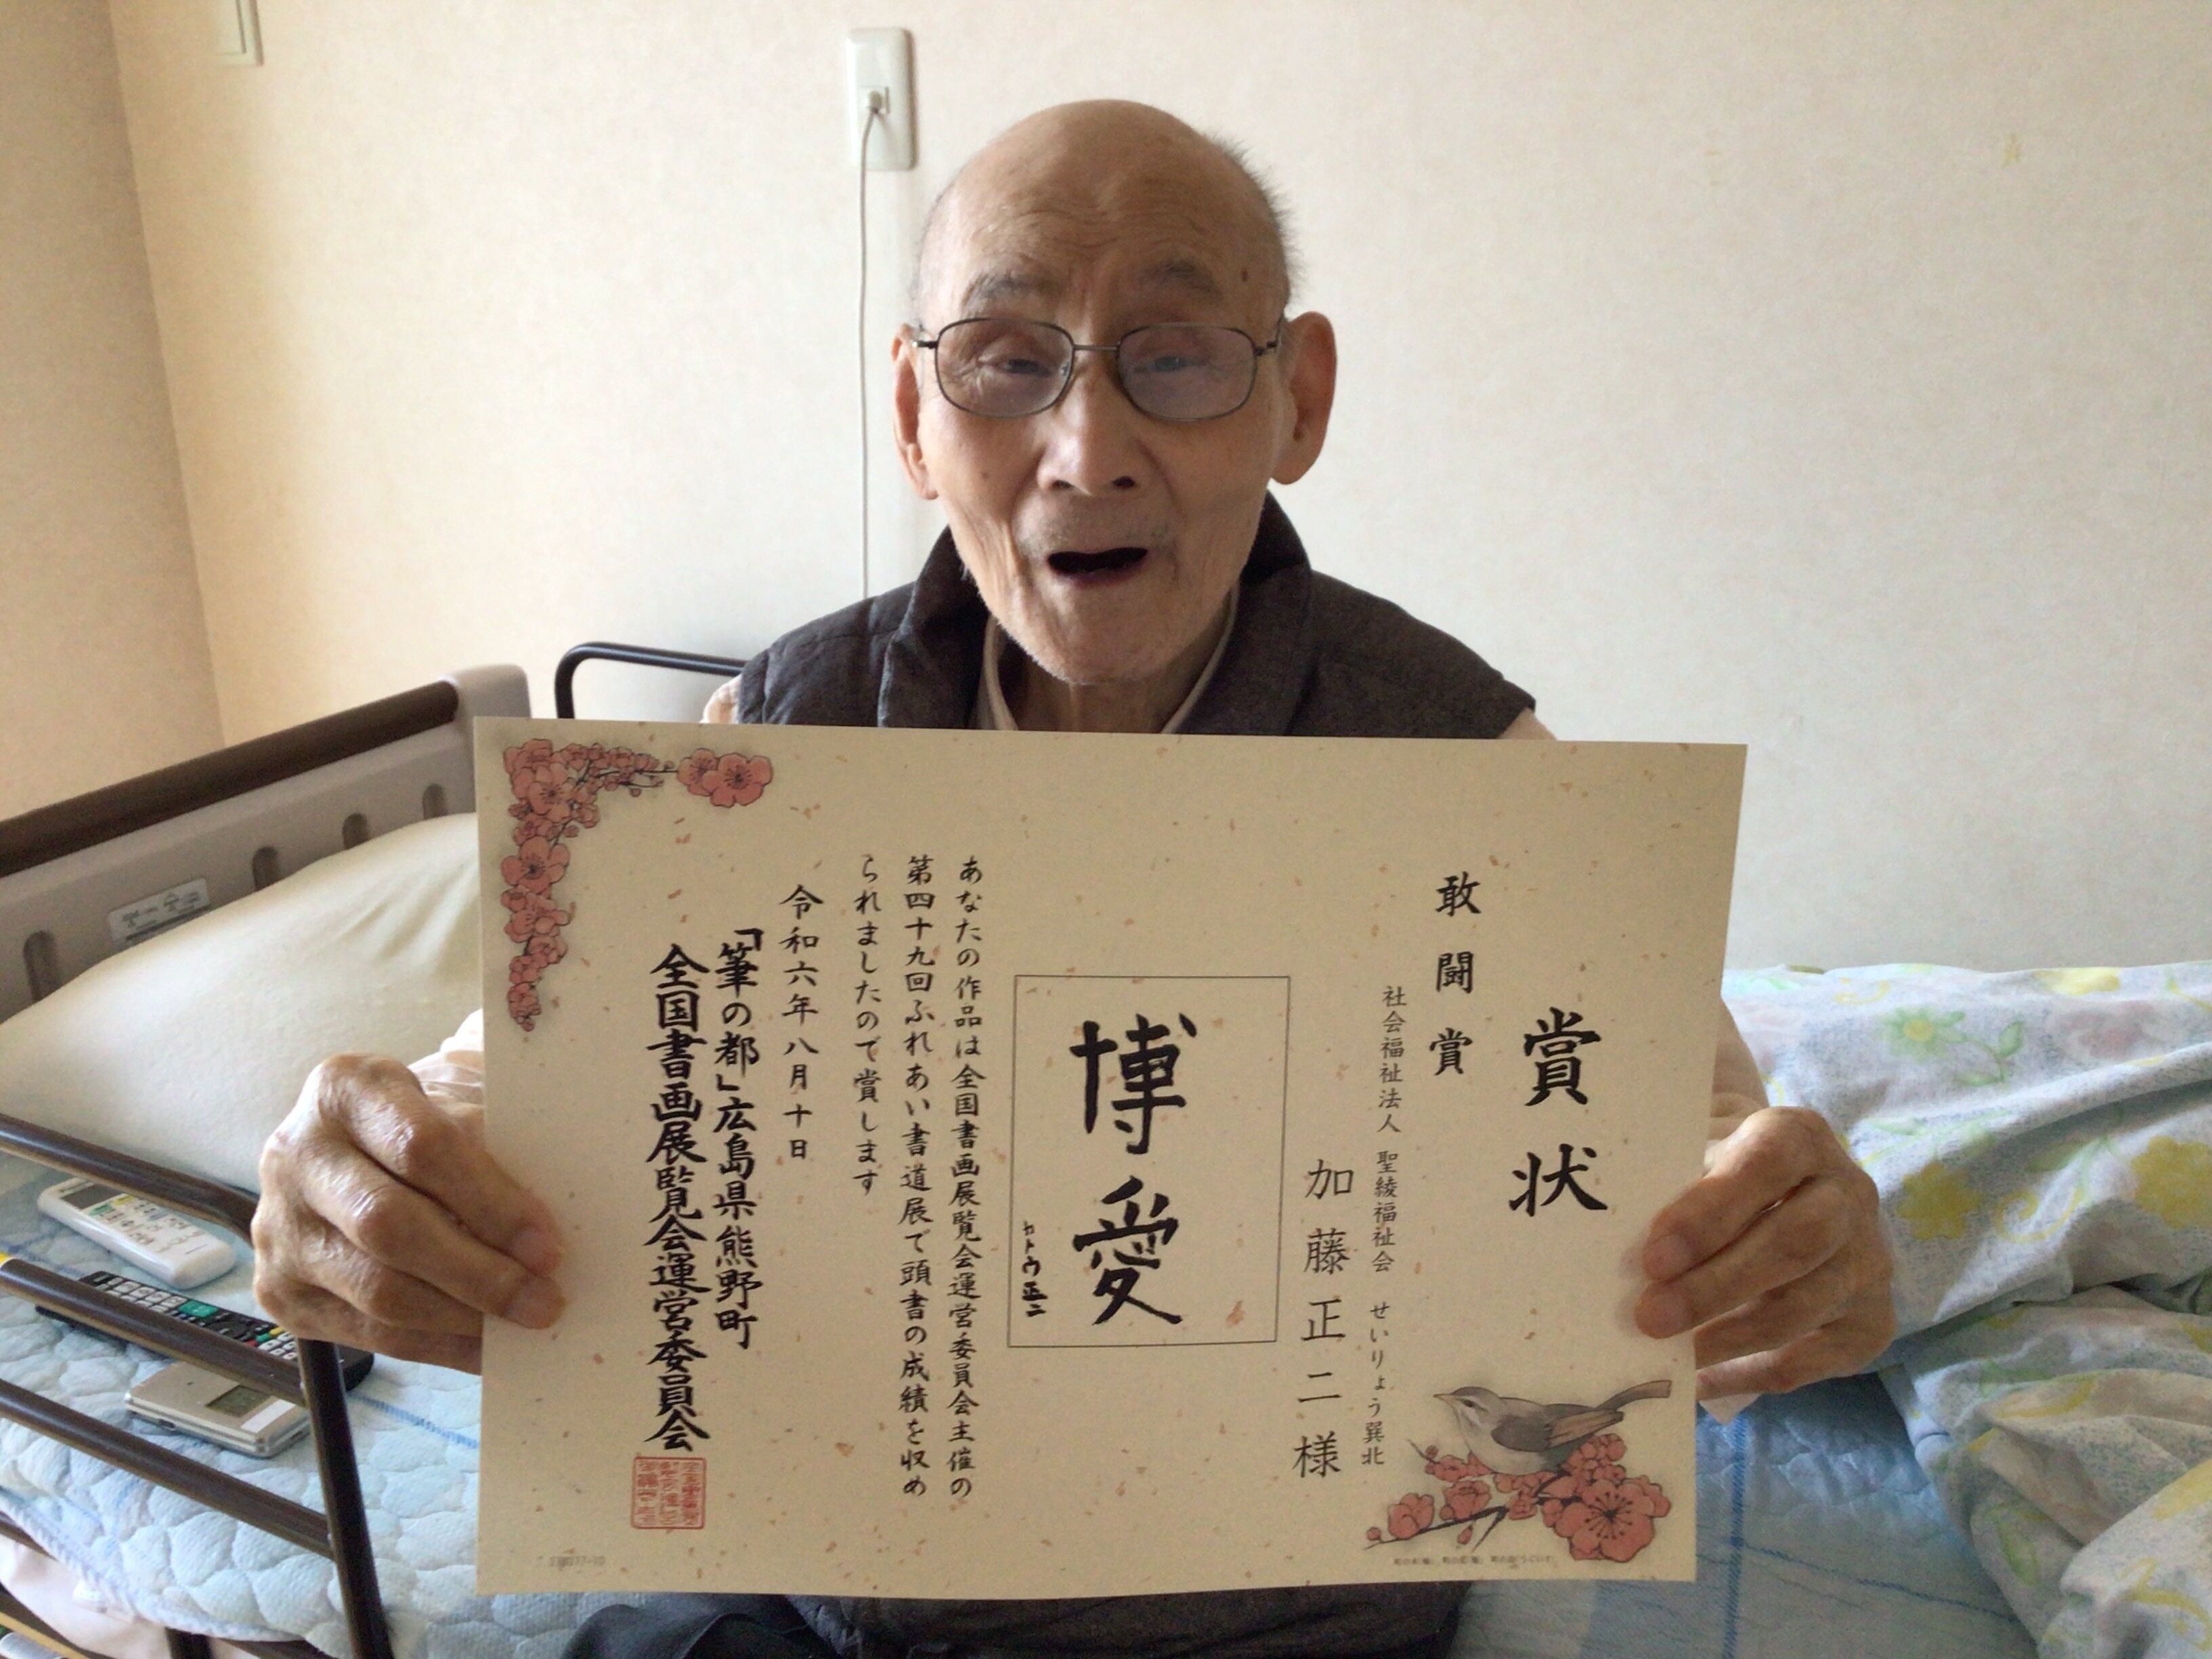 賞状
敢闘賞
社会福祉法人 聖綾福祉会 せいりょう巽北
加藤正二様
博愛
カトウ正二
あなたの作品は全国書画展覧会運営委員会主催の
第四十九回ふれあい書道展で頭書の成績を収め
られましたので賞します
令和六年八月十日
「筆の都」広島県熊野町
全国書画展覧会運営委員会